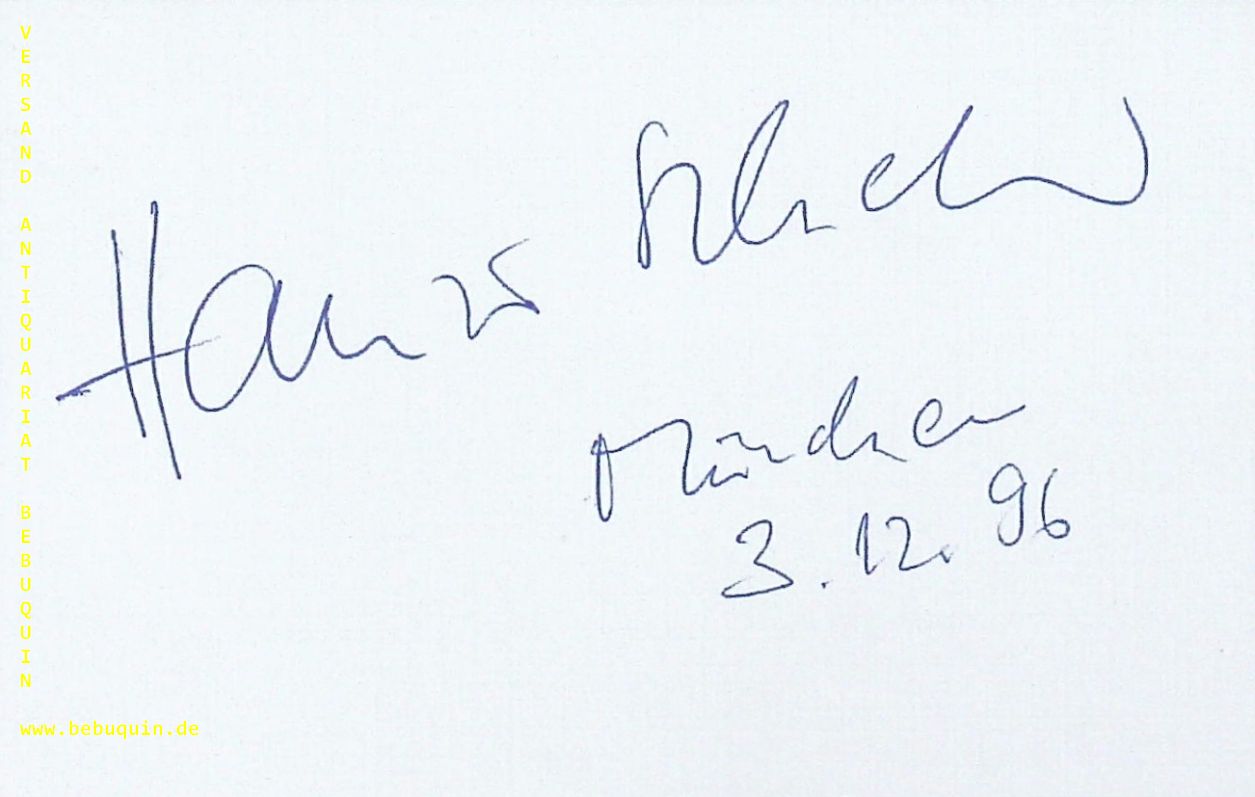 VERSAND ANTIQUARIAT BEBUQUIN
München
3.12.96
www.bebuquin.de